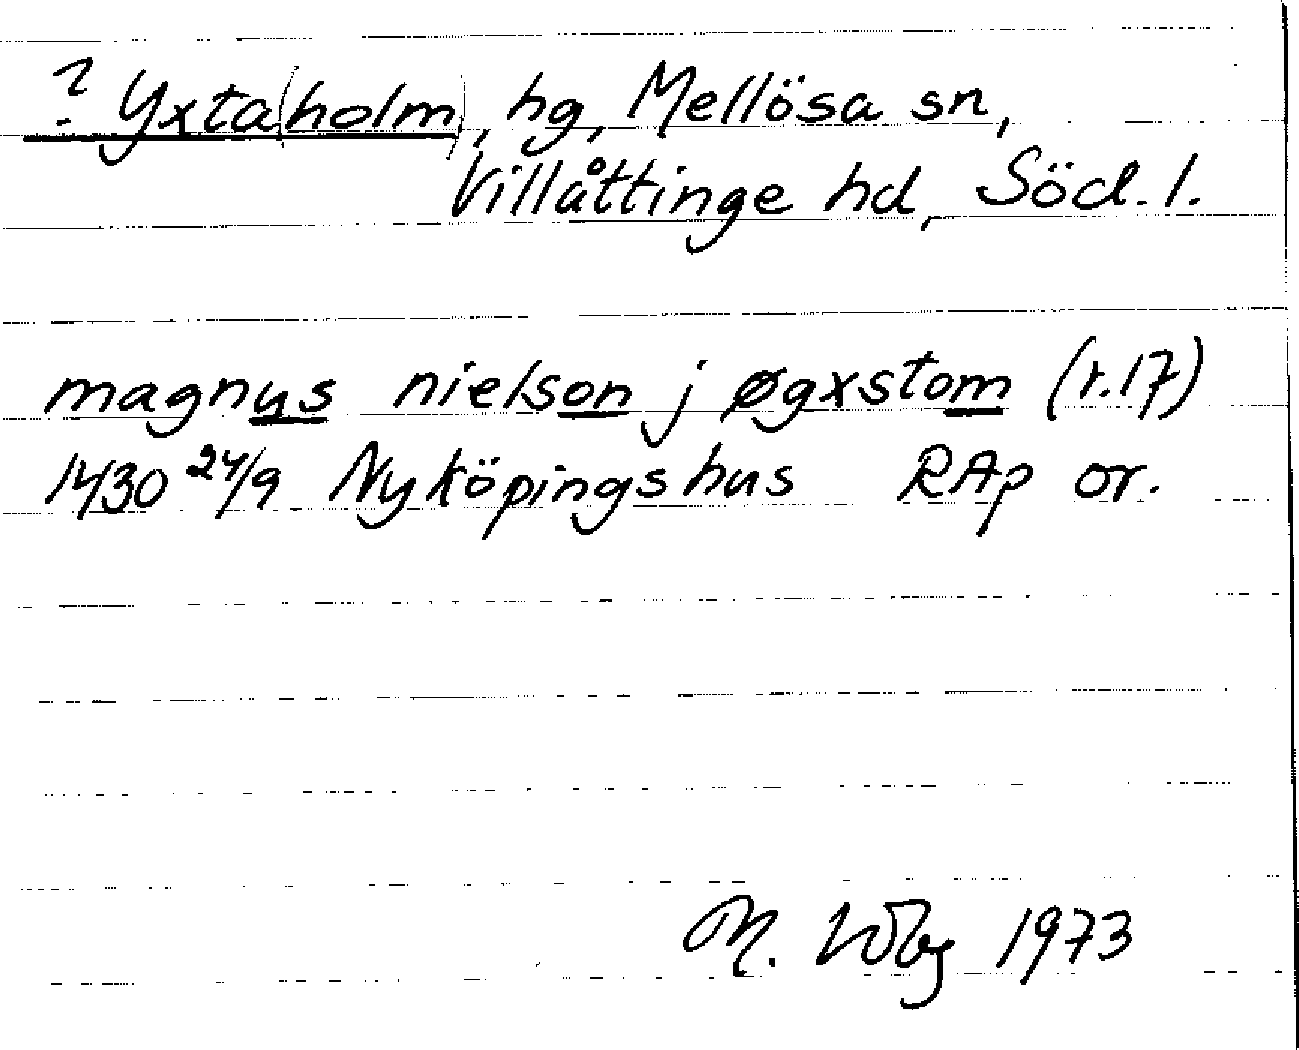 ? Yxta(holm), hg, Mellösa sn,
Villåttinge hd, Söd. l.
magnus nielson j øgxstom (r.17)
1430 24/9 Nyköpingshus RAp or.
M. 1973